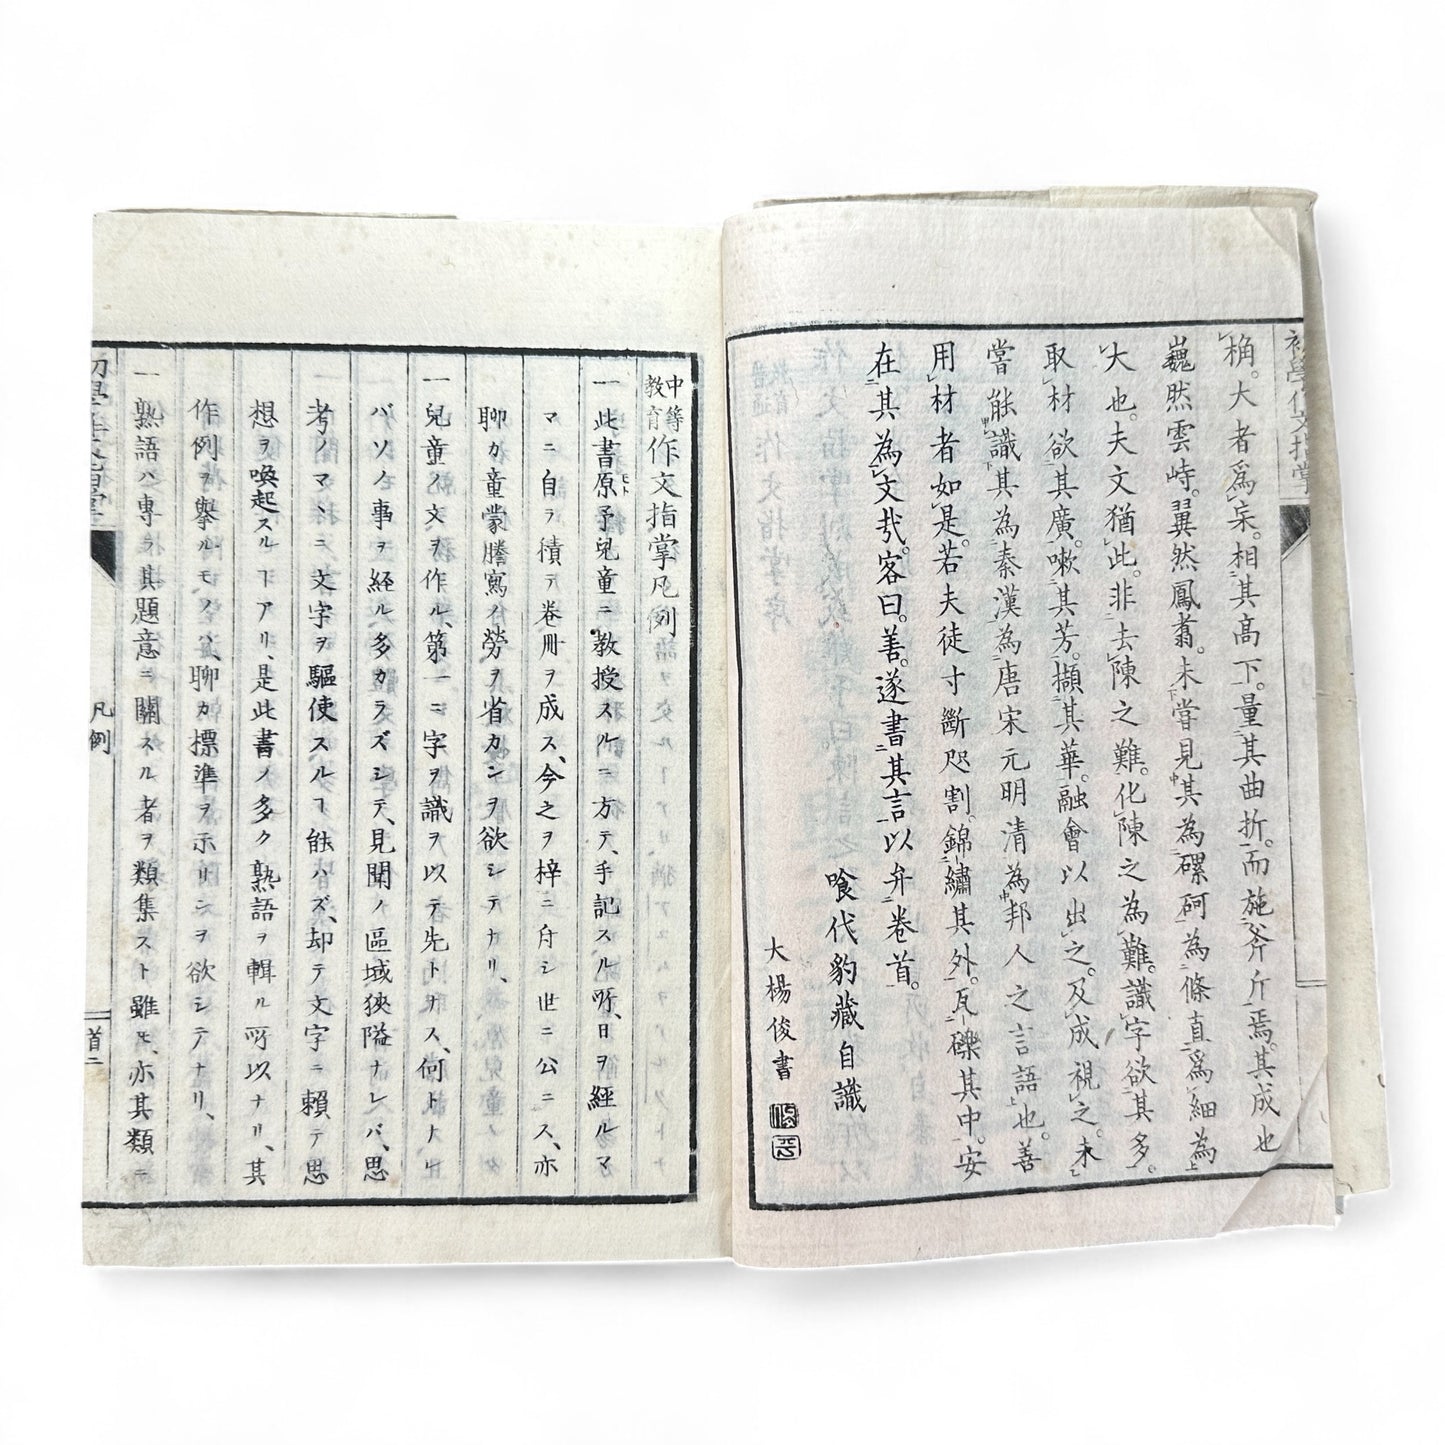 桷。大者爲杗。相其高下。量其曲折。而施斧斤焉。其成也
巍然雲峙。翼然鳳翥。未嘗見其為磥砢為條直爲細為
大也。夫文猶此。非去陳之難。化陳之為難。識字欲其多。
取材欲其廣。嗽其芳。擷其華。融會以出之。及成視之。未
嘗能識其為秦漢為唐宋元明清為邦人之言語也。善
用材者如是。若夫徒寸斷咫割。錦繡其外。瓦礫其中。安
在其為文哉。客曰。善。遂書其言以弁卷首。
喰代豹藏自識
大楊俊書
中等教育作文指掌凡例
一此書原予兒童ニ教授スルニ方テ、手記スル所、日ヲ經ルマ
マニ自ラ積テ卷冊ヲ成ス、今之ヲ梓ニ付シ世ニ公ニス、亦
聊カ童蒙謄寫ノ勞ヲ省カンヿヲ欲シテナリ、
一兒童ノ文ヲ作ル、第一ニ字ヲ識ルヲ以テ先トナス、何トナレ
バソノ事ヲ経ル多カラズシテ、見聞ノ區域狹隘ナレバ、思
考ノマヽニ文字ヲ驅使スルヿ能ハズ、却テ文字ニ賴テ思
想ヲ喚起スルヿアリ、是此書ノ多ク熟語ヲ輯ル所以ナリ、其
作例ヲ擧ルモノハ、聊カ標準ヲ示サンヿヲ欲シテナリ、
一熟語ハ專ラ其題意ニ關スル者ヲ類集スト雖モ、亦其類ニ
初學作文指掌
凡例
首二